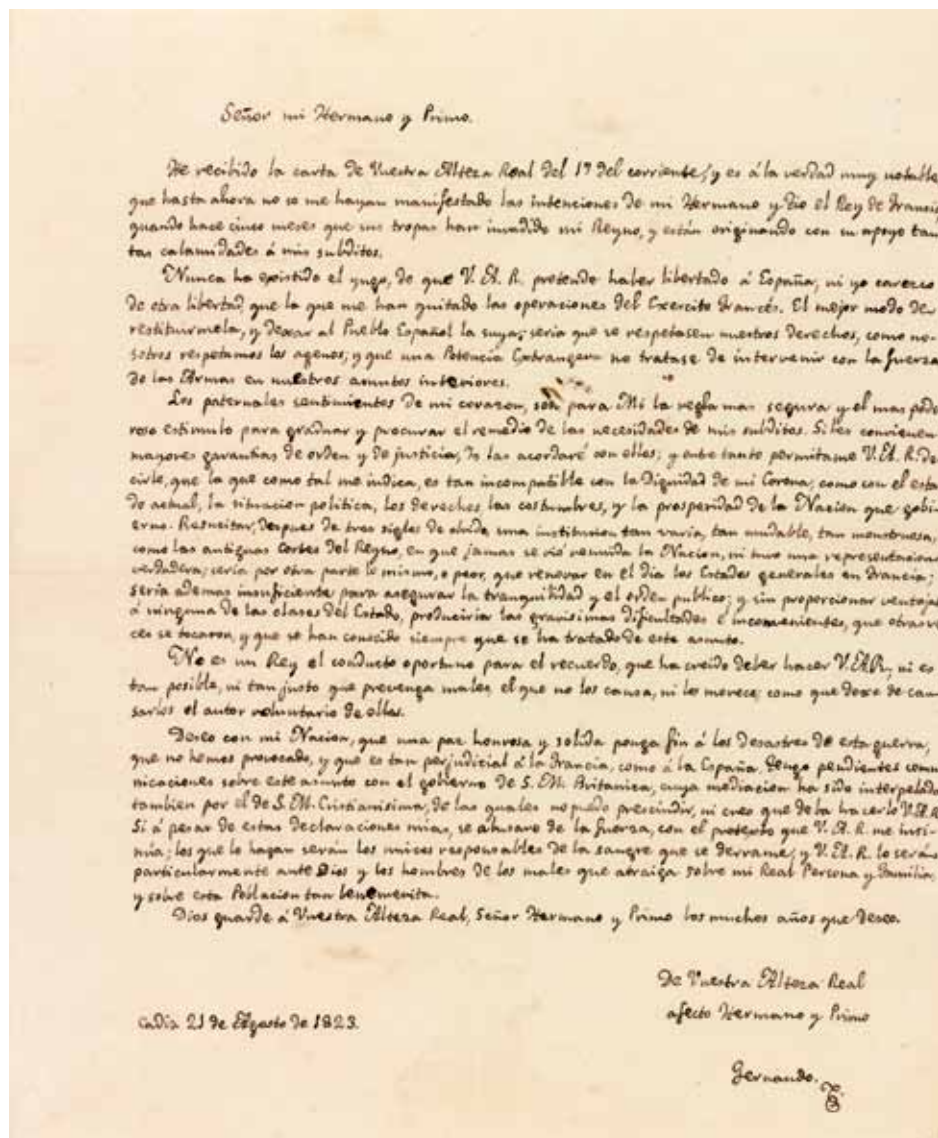 Señor mi Hermano y Primo.
He recibido la carta de Vuestra Alteza Real del 17 del corriente, y es á la verdad muy notable,
que hasta ahora no se me hayan manifestado las intenciones de mi Hermano y Tio el Rey de Francia,
quando hace cinco meses que sus tropas han invadido mi Reyno, y están originando con su apoyo tan
tas calamidades á mis subditos.
Nunca ha existido el yugo, de que V. A. R. pretende haber libertado á España, ni yo carezco
de otra libertad, que la que me han quitado las operaciones del Exercito Francés. El mejor modo de
restituirmela, y dexar al Pueblo Español la suya; seria que se respetasen nuestros derechos, como no-
sotros respetamos los agenos; y que una Potencia Extrangera no tratase de intervenir con la fuerza
de las Armas en nuestros asuntos interiores.
Los paternales sentimientos de mi corazon, son para Mi la regla mas segura y el mas pode
roso estimulo para graduar y procurar el remedio de las necesidades de mis subditos. Si les convienen
mayores garantias de orden y de justicia, Yo las acordaré con ellos; y entre tanto permitame V. A. R. de
cirle, que la que como tal me indica, es tan incompatible con la Dignidad de mi Corona, como con el esta
do actual, la situacion politica, los derechos, las costumbres, y la prosperidad de la Nacion que gobi
erno. Resucitar, despues de tres siglos de olvido, una institucion tan varia, tan mudable, tan monstruosa,
como las antiguas Cortes del Reyno, en que jamas se vió reunida la Nacion, ni tuvo una representacion
verdadera; sería por otra parte lo mismo, o peor, que renovar en el dia los Estados generales en Francia;
sería ademas insuficiente para asegurar la tranquilidad y el orden publico; y sin proporcionar ventajas
á ninguna de las clases del Estado, produciria las gravisimas dificultades e inconvenientes, que otras ve
ces se tocaron, y que se han conocido siempre que se ha tratado de este asunto.
No es un Rey el conducto oportuno para el recuerdo, que ha creido deber hacer V. A. R., ni es
tan posible, ni tan justo que prevenga males, el que no los causa, ni los merece; como que dexe de cau
sarlos el autor voluntario de ellos.
Deseo con mi Nacion, que una paz honrosa y solida ponga fin á los desastres de esta guerra,
que no hemos provocado, y que es tan perjudicial á la Francia, como á la España. Tengo pendientes comu
nicaciones sobre este asunto con el gobierno de S. M. Britanica, cuya mediacion ha sido interpelada
tambien por el de S. M. Cristianisima, de las quales no puedo prescindir, ni creo que deba hacerlo V. A. R.
Si á pesar de estas declaraciones mias, se abusare de la fuerza, con el pretexto que V. A. R. me insi-
núa; los que lo hagan serán los unicos responsables de la sangre que se derrame; y V. A. R. lo será
particularmente ante Dios y los hombres de los males que atraiga sobre mi Real Persona y Familia,
y sobre esta Poblacion tan benemerita.
Dios guarde á Vuestra Alteza Real, Señor Hermano y Primo los muchos años que deseo.
De Vuestra Alteza Real
afecto Hermano y Primo
Cadiz 21 de Agosto de 1823.
Fernando.